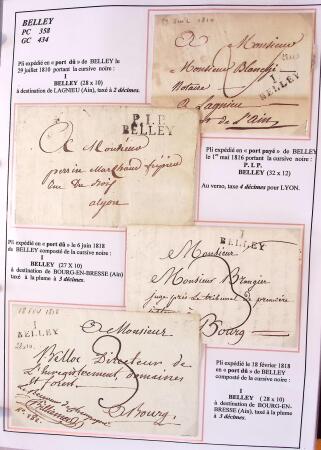 BELLEY
PC 358
GC 434
Pli expédié en « port dû » de BELLEY le
29 juillet 1810 portant la cursive noire :
I
BELLEY (28 x 10)
à destination de LAGNIEU (Ain), taxé à 2 décimes.
A
Monsieur
Monsieur Blanchet
Notaire
à Lagnieu
de l'ain
BELLEY
P.1.P.
BELLEY
A Monsieur
alyon
Pli expédié en « port payé » de BELLEY
le 1er mai 1816 portant la cursive noire :
P. 1P.
BELLEY (32 x 12)
Au verso, taxé 4 décimes pour LYON.
Pli expédié en « port dû » le 6 juin 1818
de BELLEY composté de la cursive noire :
I
BELLEY (27 X 10)
à destination de BOURG-EN-BRESSE (Ain)
taxé à la plume à 3 décimes.
I
BELLEY
Monsieur
Monsieur
juge près le tribunal de première
Bourg
18 FEV 1818
I
BELLEY
28x10
A Monsieur
Directeur de
L'enregistrement, domaines
et forêts
Bourg
Pli expédié le 18 février 1818
en « port dû » de BELLEY
composté de la cursive noire :
I
BELLEY (28 x 10)
à destination de BOURG-EN-
BRESSE (Ain), taxé à la plume
à 3 décimes.